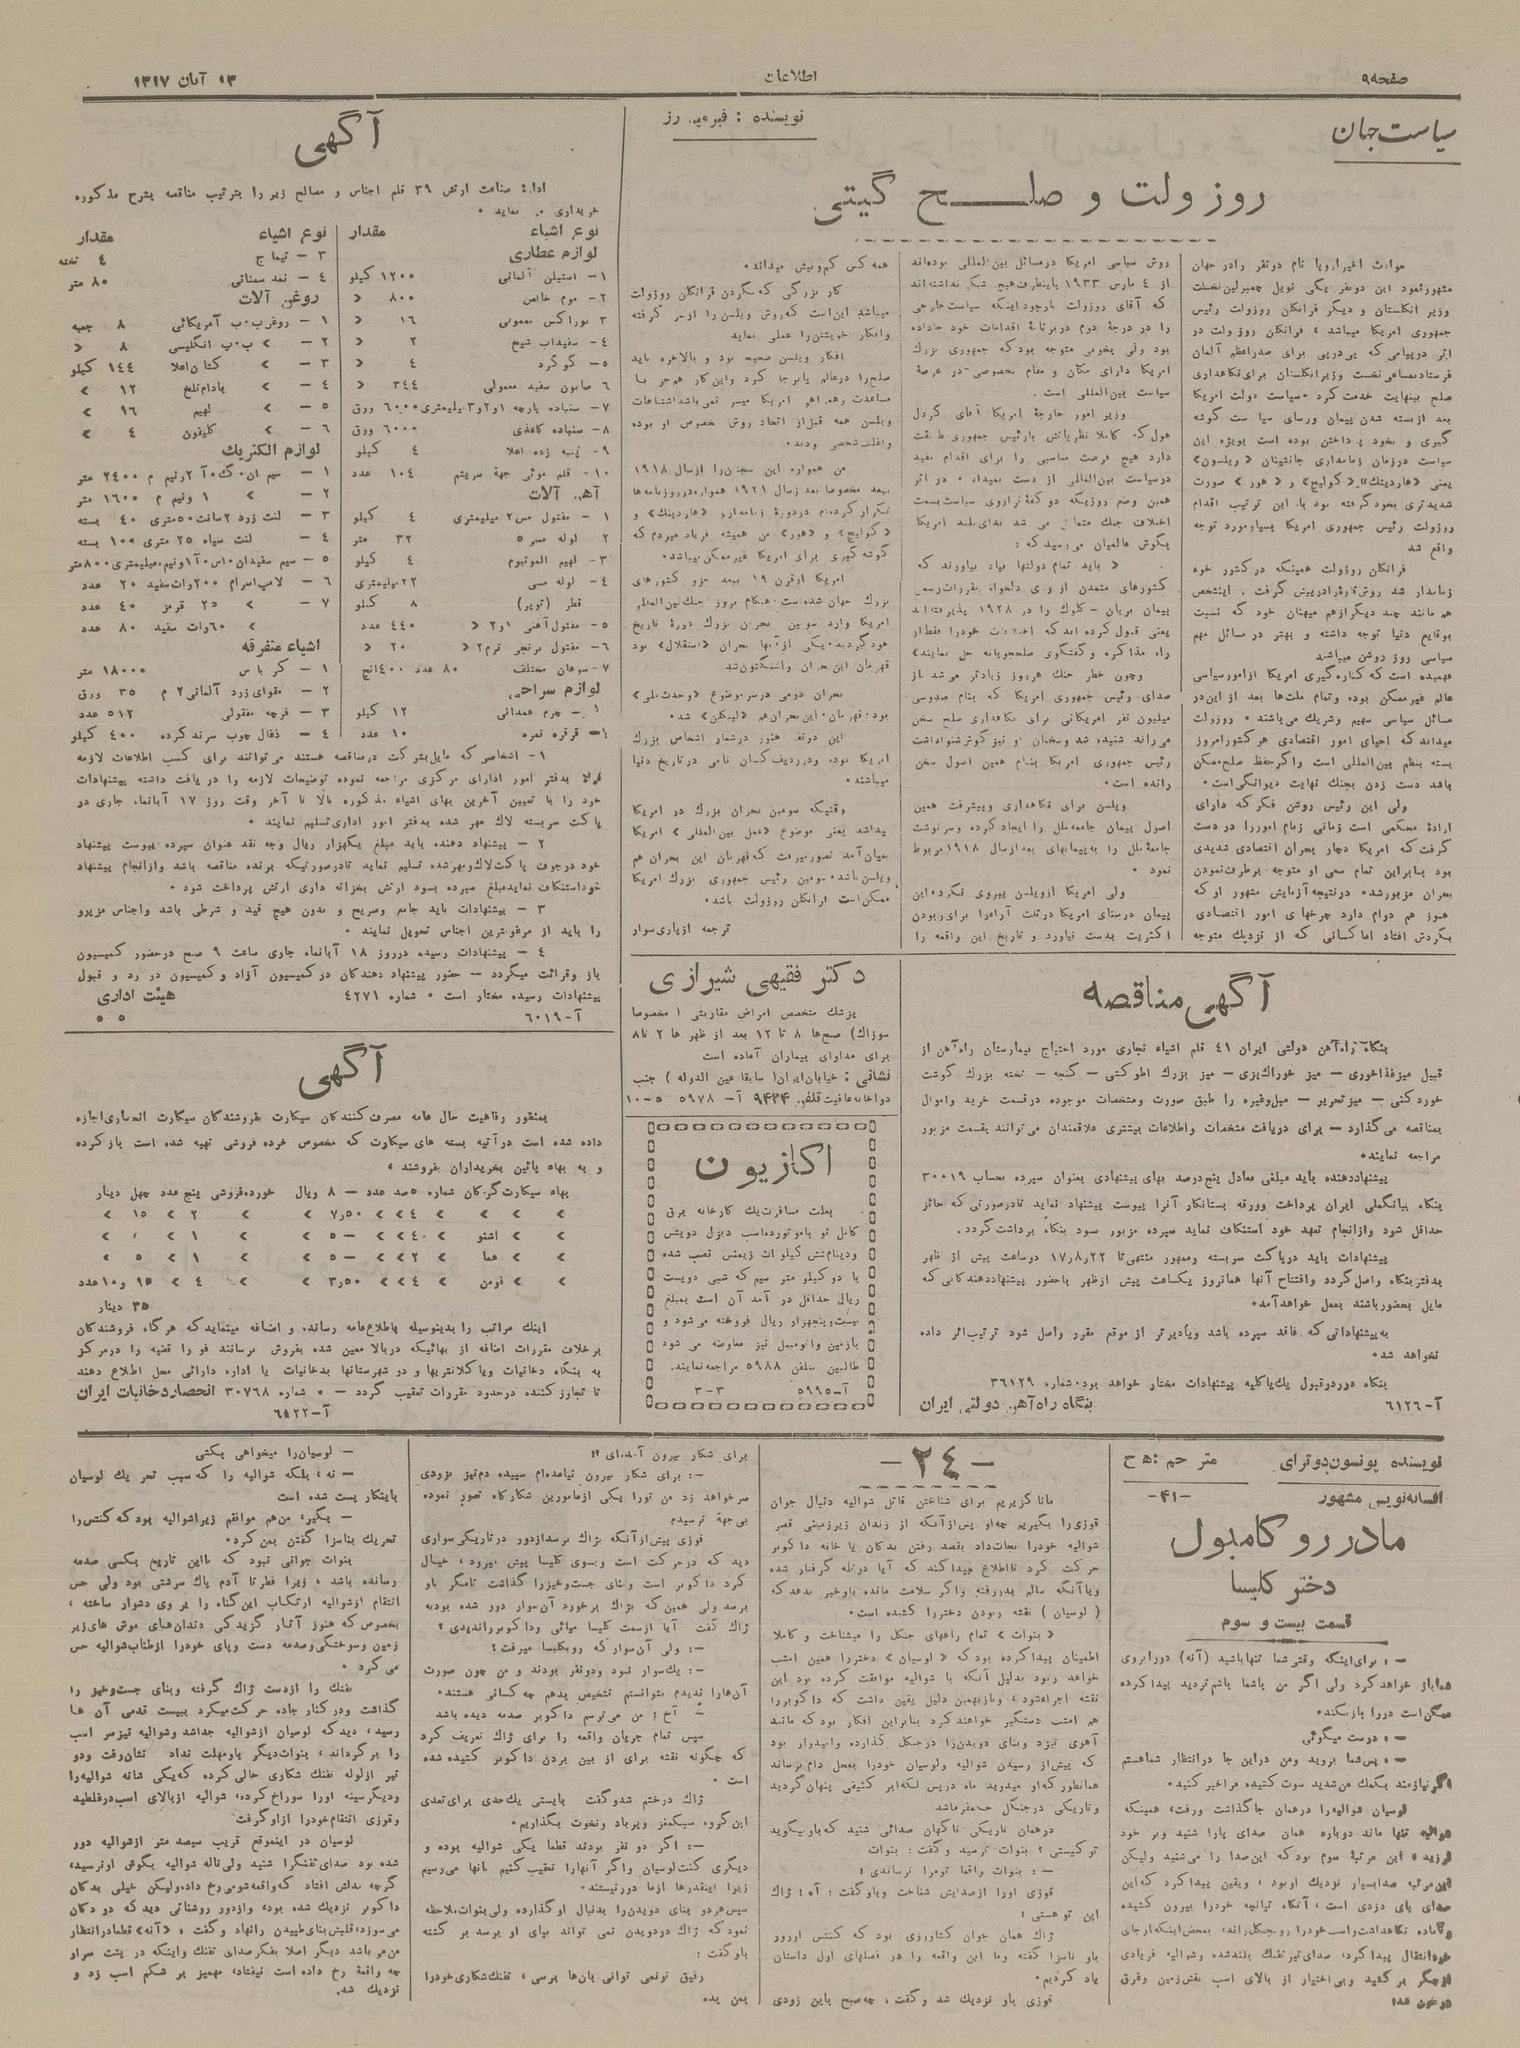 صفحه ۹
اطلاعات
۱۳ آبان ۱۳۱۷
سیاست جهان
نویسنده :
روزولت و صلح گیتی
حوادث اخیر اروپا نام دو نفر را در جهان
مشهور نمود این دو نفر یکی نویل چمبرلین نخست
وزیر انگلستان و دیگر فرانکلن روزولت رئیس
جمهوری امریکا میباشد ، فرانکلن روزولت در
اثر دو پیامی که پی درپی برای صدراعظم آلمان
فرستاد مساعی نخست وزیر انگلستان برای نگاهداری
صلح بینهایت خدمت کرد ۰ سیاست دولت امریکا
بعد از بسته شدن پیمان ورسای سیاست گوشه
گیری و بخود پرداختن بوده است بویژه این
سیاست در زمان زمامداری جانشینان «ویلسن»
یعنی «هاردینك»، «کولیج» و «هور» صورت
شدیدتری بخود گرفته بود با این ترتیب اقدام
روزولت رئیس جمهوری امریکا بسیار مورد توجه
واقع شد
فرانکلن روزولت همینکه در کشور خود
زمامدار شد روش تازه را در پیش گرفت . اینشخص
هم مانند چند دیگر از هم میهنان خود که نسبت
بوقایع دنیا توجه داشته و بهتر در مسائل مهم
سیاسی روز روشن میباشند
فهمیده است که کناره گیری امریکا از امور سیاسی
عالم غیرممکن بوده و تمام ملت‌ها بعد از این در
مسائل سیاسی سهیم و شریك می‌باشند ۰ روزولت
میداند که احیای امور اقتصادی هر کشور امروز
بسته بنظم بین‌المللی است و اگر حفظ صلح ممکن
باشد دست زدن بجنك نهایت دیوانگی است ۰
ولی این رئیس روشن فکر که دارای
ارادهٔ محکمی است زمانی زمام امور را در دست
گرفت که امریکا دچار بحران اقتصادی شدیدی
بود بنابراین تمام سعی او متوجه برطرف نمودن
بحران مزبور شد ۰ در نتیجه آزمایش مشهور او که
هنوز هم دوام دارد چرخهای امور اقتصادی
بگردش افتاد اما کسانی که از نزدیك متوجه
روش سیاسی امریکا در مسائل بین‌المللی بوده‌اند
از ۴ مارس ۱۹۳۳ باینطرف هیچ شکی نداشته‌اند
که آقای روزولت باوجود اینکه سیاست خارجی
را در درجهٔ دوم در برنامهٔ اقدامات خود جا داده
بود ولی بخوبی متوجه بود که جمهوری بزرك
امریکا دارای مکان و مقام مخصوصی در عرصهٔ
سیاست بین‌المللی است .
وزیر امور خارجهٔ امریکا آقای کردل
هول که کاملا نظریاتش با رئیس جمهوری مطابقت
دارد هیچ فرصت مناسبی را برای اقدام مفید
در سیاست بین‌المللی از دست نمیداد ۰ در اثر
همین وضع روزیکه دو کفهٔ ترازوی سیاست بسمت
اختلاف جنك متمایل می شد ندای بلند امریکا
بگوش عالمیان می‌رسید که :
« باید تمام دولتها بیاد بیاورند که
کشورهای متمدن از روی دلخواه مقررات رسمی
پیمان بریان - کلوك را در ۱۹۲۸ پذیرفته‌اند
یعنی قبول کرده‌اند که اختلافات خود را فقط از
راه مذاکره و گفتگوی صلحجویانه حل نمایند»
و چون خطر جنك هر روز زیادتر می‌شد از
صدای رئیس جمهوری امریکا که بنام صد و سی
میلیون نفر امریکائی برای نگاهداری صلح سخن
می‌راند شنیده شد و سخنان او نیز گوش شنوا داشت
رئیس جمهوری امریکا بنام همین اصول سخن
رانده است ۰
ویلسن برای نگاهداری و پیشرفت همین
اصول پیمان جامعه ملل را ایجاد کرده و سرنوشت
جامعهٔ ملل را به پیمانهای بعد از سال ۱۹۱۸ مربوط
نمود ۰
ولی امریکا از ویلسن پیروی نکرد ۰ این
پیمان در سنای امریکا دو ثلث آراء را برای ربودن
اکثریت بدست نیاورد و تاریخ این واقعه را
همه کس کم و بیش میداند ۰
کار بزرگی که بگردن فرانکلن روزولت
میباشد این است که روش ویلسن را از سر گرفته
و افکار خویشتن را عملی نماید
افکار ویلسن صحیح بود و بالاخره باید
صلح را در عالم پابرجا کرد و این کار هم جز با
مساعدت و همراهی امریکا میسر نمی‌باشد اشتباهات
ویلسن همه قبل از اتحاد روش خصوص او بوده
و اغلب شخصی بودند ۰
من همواره این سخن را از سال ۱۹۱۸
ببعد مخصوصا بعد از سال ۱۹۲۱ همواره در روزنامه‌ها
تکرار کرده‌ام در دورهٔ زمامداری «هاردینك» و
«کولیج» و «هور» من همیشه فریاد میزدم که
گوشه گیری برای امریکا غیرممکن میباشد ۰
امریکا از قرن ۱۹ ببعد جزو کشورهای
بزرك جهان شده است ۰ هنگام بروز جنك بین‌المللی
امریکا وارد سومین بحران بزرك دورهٔ تاریخ
خود گردید ۰ یکی از آنها بحران «استقلال» بود
قهرمان این بحران واشنگتون شد
بحران دومی در سر موضوع «وحدت ملی»
بود ۰ قهرمان این بحران هم «لینکلن» شد ۰
این دو نفر هنوز در شمار اشخاص بزرك
امریکا بوده و در ردیف کسان نامی در تاریخ دنیا
میباشند ۰
وقتیکه سومین بحران بزرك در امریکا
پیدا شد یعنی موضوع «عمل بین‌المللی» امریکا
بمیان آمد تصور میرفت که قهرمان این بحران هم
ویلسن باشد ۰ سومین رئیس جمهوری بزرك امریکا
ممکن است فرانکلن روزولت باشد ۰
ترجمه از یاری سوار
آگهی
اداره صناعت ارتش ۳۹ قلم اجناس و مصالح زیر را بترتیب مناقصه بشرح مذکوره
خریداری می نماید ۰
نوع اشیاء مقدار
لوازم عطاری
۱- استیلن آلمانی ۱۲۰۰ کیلو
۲- موم خالص ۸۰۰ «
۳ بوراکس معمولی ۱۶ «
۴- سفیداب شیخ ۲ «
۵- گوگرد ۴ «
۶ صابون سفید معمولی ۳۴۴ «
۷- سنباده پارچه ۱و۲و۳ میلیمتری ۶۰۰۰ ورق
۸- سنباده کاغذی ۶۰۰۰ ورق
۹- پنبه زده اعلا ۴ کیلو
۱۰- قلم موئی جهة سریشم ۱۰۴ عدد
آهن آلات
۱ - مفتول مس ۲ میلیمتری ۴ کیلو
۲ - لوله مسر ۵ ۳۲ متر
۳- لهیم المونیوم ۴ کیلو
۴- لوله مسی ۲۲ میلیمتری
قطر (توپر) ۸ کیلو
۵- مفتول آهنی ۱و۲ « ۴۴۰ عدد
۶- مفتول برنجی نرم ۲ « ۲۰ «
۷- سوهان مختلف ۸۰ عدد ۴۰۰ اینچ
لوازم سراجی
۱ - چرم همدانی ۱۲ کیلو
قرقره نمره ۱۰ عدد
نوع اشیاء مقدار
۳ - تیماج ۴ تخته
۴ - نمد سمنانی ۸۰ متر
روغن آلات
۱ - روغن ب.ب آمریکائی ۸ جعبه
۲ - » ب.پ انگلیسی ۸ «
۳ - » کتان اعلا ۱۴۴ کیلو
۴ - » بادام تلخ ۱۲ »
۵ - » لهیم ۱۶ »
۶ - » کلیفون ۴ »
لوازم الکتریك
۱ - سیم ان.گ.آ ۲ و نیم م م ۲۴۰۰ متر
۲ - » ۱ و نیم م ۱۶۰۰ متر
۳ - لنت زرد ۲ سانت ۵۰ متری ۴۰ بسته
۴ - لنت سیاه ۲۵ متری ۱۰۰ بسته
۵ - سیم سفید ان.اس.آ ۱ و نیم میلیمتری ۸۰۰ متر
۶ - لامپ اسرام ۲۰۰ وات سفید ۲۰ عدد
۷ - » ۲۵ قرمز ۴۰ عدد
» ۶۰ وات سفید ۸۰ عدد
اشیاء متفرقه
۱ - کرباس ۱۸۰۰۰ متر
۲ - مقوای زرد آلمانی ۲ م ۳۵ ورق
۳ - فرچه مفتولی ۵۱۲ عدد
۴ - ذغال چوب سرند کرده ۴۰۰ کیلو
۱- اشخاصی که مایل بشرکت در مناقصه هستند می‌توانند برای کسب اطلاعات لازمه
بدفتر امور اداری مرکزی مراجعه نموده توضیحات لازمه را دریافت داشته پیشنهادات
خود را با تعیین آخرین بهای اشیاء مذکوره بالا تا آخر وقت روز ۱۷ آبانماه جاری در
پاکت سربسته لاك مهر شده بدفتر امور اداری تسلیم نمایند ۰
۲ - پیشنهاد دهنده باید مبلغ یکهزار ریال وجه نقد عنوان سپرده پیوست پیشنهاد
خود در جوف پاکت لاك و مهر شده تسلیم نماید تا در صورتیکه برنده مناقصه باشد و از انجام پیشنهاد
خود استنکاف نماید مبلغ سپرده بسود ارتش بخزانه داری ارتش پرداخت شود ۰
۳ - پیشنهادات باید جامع و صریح و بدون هیچ قید و شرطی باشد و اجناس مزبور
را باید از مرغوبترین اجناس تحویل نمایند ۰
۴ - پیشنهادات رسیده در روز ۱۸ آبانماه جاری ساعت ۹ صبح در حضور کمیسیون
باز و قرائت میگردد - حضور پیشنهاد دهندگان در کمیسیون آزاد و کمیسیون در رد و قبول
پیشنهادات رسیده مختار است ۰ شماره ۴۲۷۱ هیئت اداری
آ-۶۰۱۹ ۵ ۵
آگهی مناقصه
بنگاه راه‌آهن دولتی ایران ۴۱ قلم اشیاء نجاری مورد احتیاج بیمارستان راه‌آهن از
قبیل میز غذاخوری - میز خوراك‌پزی - میز بزرك اطو کشی - گنجه - تخته بزرك گوشت
خورد کنی - میز تحریر - مبل و غیره را طبق صورت و مشخصات موجوده در قسمت خرید و اموال
بمناقصه می گذارد - برای دریافت مشخصات و اطلاعات بیشتری علاقمندان می‌توانند بقسمت مزبور
مراجعه نمایند ۰
پیشنهاد دهنده باید مبلغی معادل پنج درصد بهای پیشنهادی بعنوان سپرده بحساب ۳۰۰۱۹
بنگاه ببانك ملی ایران پرداخت و ورقه بستانکار آنرا پیوست پیشنهاد نماید تا در صورتی که حائز
حداقل شود و از انجام تعهد خود استنکاف نماید سپرده مزبور سود بنگاه برداشت گردد .
پیشنهادات باید در پاکت سربسته و ممهور منتهی تا ۱۷٫۸٫۲۲ دو ساعت پیش از ظهر
بدفتر بنگاه واصل گردد و افتتاح آنها همان روز یکساعت پیش از ظهر با حضور پیشنهاد دهندگانی که
مایل بحضور باشند بعمل خواهد آمد ۰
به پیشنهاداتی که فاقد سپرده باشد و یا دیرتر از موقع مقرر واصل شود ترتیب اثر داده
نخواهد شد ۰
بنگاه در رد و قبول یك یا کلیه پیشنهادات مختار خواهد بود ۰ شماره ۳۶۱۲۹
آ-۶۱۲۶ بنگاه راه‌آهن دولتی ایران
دکتر فقیهی شیرازی
پزشك متخصص امراض مقاربتی ( مخصوصا
سوزاك) صبح‌ها ۸ تا ۱۲ بعد از ظهر ها ۲ تا ۸
برای مداوای بیماران آماده است
نشانی : خیابان ایران ( سابقا عین الدوله ) جنب
دواخانه عافیت تلفن ۹۴۳۴ آ- ۵۹۷۸ ۵-۱۰
اکازیون
بعلت مسافرت یك کارخانه برق
کامل نو با موتور ده اسب دیزل دویتس
و دینام شش کیلو ات زیمنس نصب شده
با دو کیلو متر سیم که شبی دویست
ریال حداقل در آمد آن است بمبلغ
بیست و پنجهزار ریال فروخته می‌شود و
بازمین و اتومبیل نیز معاوضه می شود
طالبین بتلفن ۵۹۸۸ مراجعه نمایند.
آ-۵۹۹۵ ۳-۳
آگهی
بمنظور رفاهیت حال عامه مصرف کنندگان سیگارت بفروشندگان سیگارت انحصاری اجازه
داده شده است در آتیه بسته های سیگارت که مخصوص خرده فروشی تهیه شده است باز کرده
و به بهاء پائین بخریداران بفروشند ،
بهاء سیگارت گرگان شماره ۵ صد عدد - ۸ ریال خورده فروشی پنج عدد چهل دینار
» » » ۴ » » ۷٫۵۰ » » ۲ » ۱۵ »
» » اشنو ۴۰ » » ۵- » » ۱ » »
» » هما ۲ » » ۵- » » ۱ » ۵ »
» » فومن ۴ » » ۳٫۵۰ » » ۴ » ۱۵ و ۱۰ عدد
۳۵ دینار
اینك مراتب را بدینوسیله باطلاع عامه رساند، و اضافه مینماید که هر گاه فروشندگان
برخلاف مقررات اضافه از بهائیکه در بالا معین شده بفروش برسانند فورا قضیه را در مرکز
به بنگاه دخانیات و یا کلانتریها و در شهرستانها بدخانیات یا اداره دارائی محل اطلاع دهند
تا تجاوز کننده در حدود مقررات تعقیب گردد - ۰ شماره ۳۰۷۶۸ انحصار دخانیات ایران
آ-۶۵۲۲
نویسنده پونسون دوترای مترجم : ه ح
افسانه نویس مشهور -۴۱-
مادر روکامبول
دختر کلیسا
قسمت بیست و سوم
- ، برای اینکه وقتی شما تنها باشید (آنه) در را بروی
شما باز خواهد کرد ولی اگر من با شما باشم تردید پیدا کرده
ممکن است در را باز نکند ۰
- ، درست میگوئی
- ، پس شما بروید و من در این جا در انتظار شما هستم
اگر نیازمند بکمك من شدید سوت کشیده مرا خبر کنید ۰
لوسیان شوالیه را در همان جا گذاشت و رفت، همینکه
شوالیه تنها ماند دوباره همان صدای پا را شنید و بر خود
لرزید ، این مرتبهٔ سوم بود که این صدا را می‌شنید ولیکن
این مرتبه صدا بسیار نزدیك او بود ، و یقین پیدا کرد که این
صدای پای دزدی است ، آنگاه تپانچه خود را بیرون کشیده
آماده نگاهداشت و اسب خود را رو بجنگل راند، بمحض اینکه از جای
خود انتقال پیدا کرد، صدای تیر تفنگ بلند شد و شوالیه فریادی
از جگر بر کشید و بی اختیار از بالای اسب نقش زمین و غرق
در خون شد،
-۲۴-
مانا گزیریم برای شناختن قاتل شوالیه دنبال جوان
قوزی را بگیریم چه او پس از آنکه از زندان زیرزمینی قصر
شوالیه خود را نجات داد بقصد رفتن بدکان یا خانه داکوبر
حرکت کرد تا اطلاع پیدا کند که آیا در تله گرفتار شده
و یا آنکه سالم بدر رفته و اگر سلامت مانده باو خبر بدهد که
( لوسیان ) نقشه ربودن دختر را کشیده است ۰
« بنوات » تمام راههای جنگل را میشناخت و کاملا
اطمینان پیدا کرده بود که « لوسیان » دختر را همین امشب
خواهد ربود بدلیل آنکه با شوالیه موافقت کرده بود این
نقشه اجرا شود ، و نیز بهمین دلیل یقین داشت که داکوبر را
هم امشب دستگیر خواهند کرد بنابراین افکار بود که مانند
آهوی تیزدو بنای دویدن را در جنگل گذارده و امیدوار بود
که پیش از رسیدن شوالیه و لوسیان خود را بمحل دام برساند
همانطور که او میدوید ماه در پس لکه ابر کثیفی پنهان گردید
و تاریکی در جنگل حکمفرما شد
در همان تاریکی ناگهان صدائی شنید که باو میگوید
تو کیستی ؟ بنوات ترسید و گفت : بنوات
- : بنوات واقعا تو مرا ترساندی !
قوزی او را از صدایش شناخت و باو گفت : آه ! ژاك
این تو هستی ؟
ژاك همان جوان کشاورزی بود که کنتس اورور
باو ناسزا گفته و ما این واقعه را در فصلهای اول داستان
یاد کردیم ۰
قوزی باو نزدیك شد و گفت ، چه صبح باین زودی
برای شکار بیرون آمده‌ای ؟!
- : برای شکار بیرون نیامده‌ام سپیده دم نیز بزودی
سر خواهد زد من تو را یکی از مامورین شکارگاه تصور نموده
بی جهة ترسیدم
قوزی پیش از آنکه بژاك برسد از دور در تاریکی سواری
دید که در حرکت است و بسوی کلیسا پیش میرود ، خیال
کرد داکوبر است و بنای جست و خیز را گذاشت تا مگر باو
برسد ولی همین که بژاك برخورد آن سوار دور شده بود به
ژاك گفت آیا از سمت کلیسا میائی و داکوبر را ندیدی ؟
- : ولی آن سوار که رو بکلیسا میرفت ؟
- : یك سوار نبود و دو نفر بودند و من چون صورت
آن‌ها را ندیدم نتوانستم تشخیص بدهم چه کسانی هستند ۰
- آخ ! من می‌ترسم داکوبر صدمه دیده باشد
سپس تمام جریان واقعه را برای ژاك تعریف کرد
که چگونه نقشه برای از بین بردن داکوبر کشیده شده
است ۰
ژاك در خشم شد و گفت بایستی یك حدی برای تعدی
این گروه سبکمغز و پرباد و نخوت بگذاریم ۰
- : اگر دو نفر بودند قطعا یکی شوالیه بوده و
دیگری کنت لوسیان و اگر آنها را تعقیب کنیم بآنها می‌رسیم
زیرا اینقدرها از ما دور نیستند ۰
سپس هر دو بنای دویدن را بدنبال او گذارده ولی بنوات ملاحظه
نمود که ژاك در دویدن نمی تواند بپای او برسد بر گشته
باو گفت :
رفیق تو نمی توانی بآن‌ها برسی ، تفنك شکاری خود را
بمن بده
- لوسیان را میخواهی بکشی
- نه ، بلکه شوالیه را که سبب تحریك لوسیان
باینکار پست شده است
- بگیر، من هم موافقم زیرا شوالیه بود که کنتس را
تحریك بناسزا گفتن بمن کرد ۰
بنوات جوانی نبود که تا این تاریخ بکسی صدمه
رسانده باشد ، زیرا فطرتا آدم پاك سرشتی بود ولی حس
انتقام از شوالیه ارتکاب این گناه را بر وی دشوار ساخته ،
بخصوص که هنوز آثار گزیدگی دندان‌های موش های زیر
زمین و سوختگی و صدمه دست و پای خود را از طناب شوالیه حس
می کرد ۰
تفنك را از دست ژاك گرفته و بنای جست و خیز را
گذاشت و در کنار جاده حرکت میکرد به بیست قدمی آن ها
رسید، دید که لوسیان از شوالیه جدا شد و شوالیه نیز سر اسب
را برگرداند ، بنوات دیگر باو مهلت نداد نشان رفت و دو
تیر از لوله تفنك شکاری خالی کرده که یکی شانه شوالیه را
و دیگر سینه او را سوراخ کرده، شوالیه از بالای اسب در غلطید
و قوزی انتقام خود را از او گرفت
لوسیان در اینموقع قریب سیصد متر از شوالیه دور
شده بود صدای تفنك را شنید ولی ناله شوالیه بگوش او نرسید،
گر چه بدلش افتاد که واقعه شومی رخ داد، ولیکن خیلی بدکان
داکوبر نزدیك شده بود، و از دور روشنائی دید که در دکان
می سوزد، قلبش بنای طپیدن را نهاد و گفت : «آنه» قطعا در انتظار
من می باشد دیگر اصلا بفکر صدای تفنك و اینکه در پشت سر او
چه واقعهٔ رخ داده است نیفتاد، مهمیز بر شکم اسب زد و
نزدیك شد.